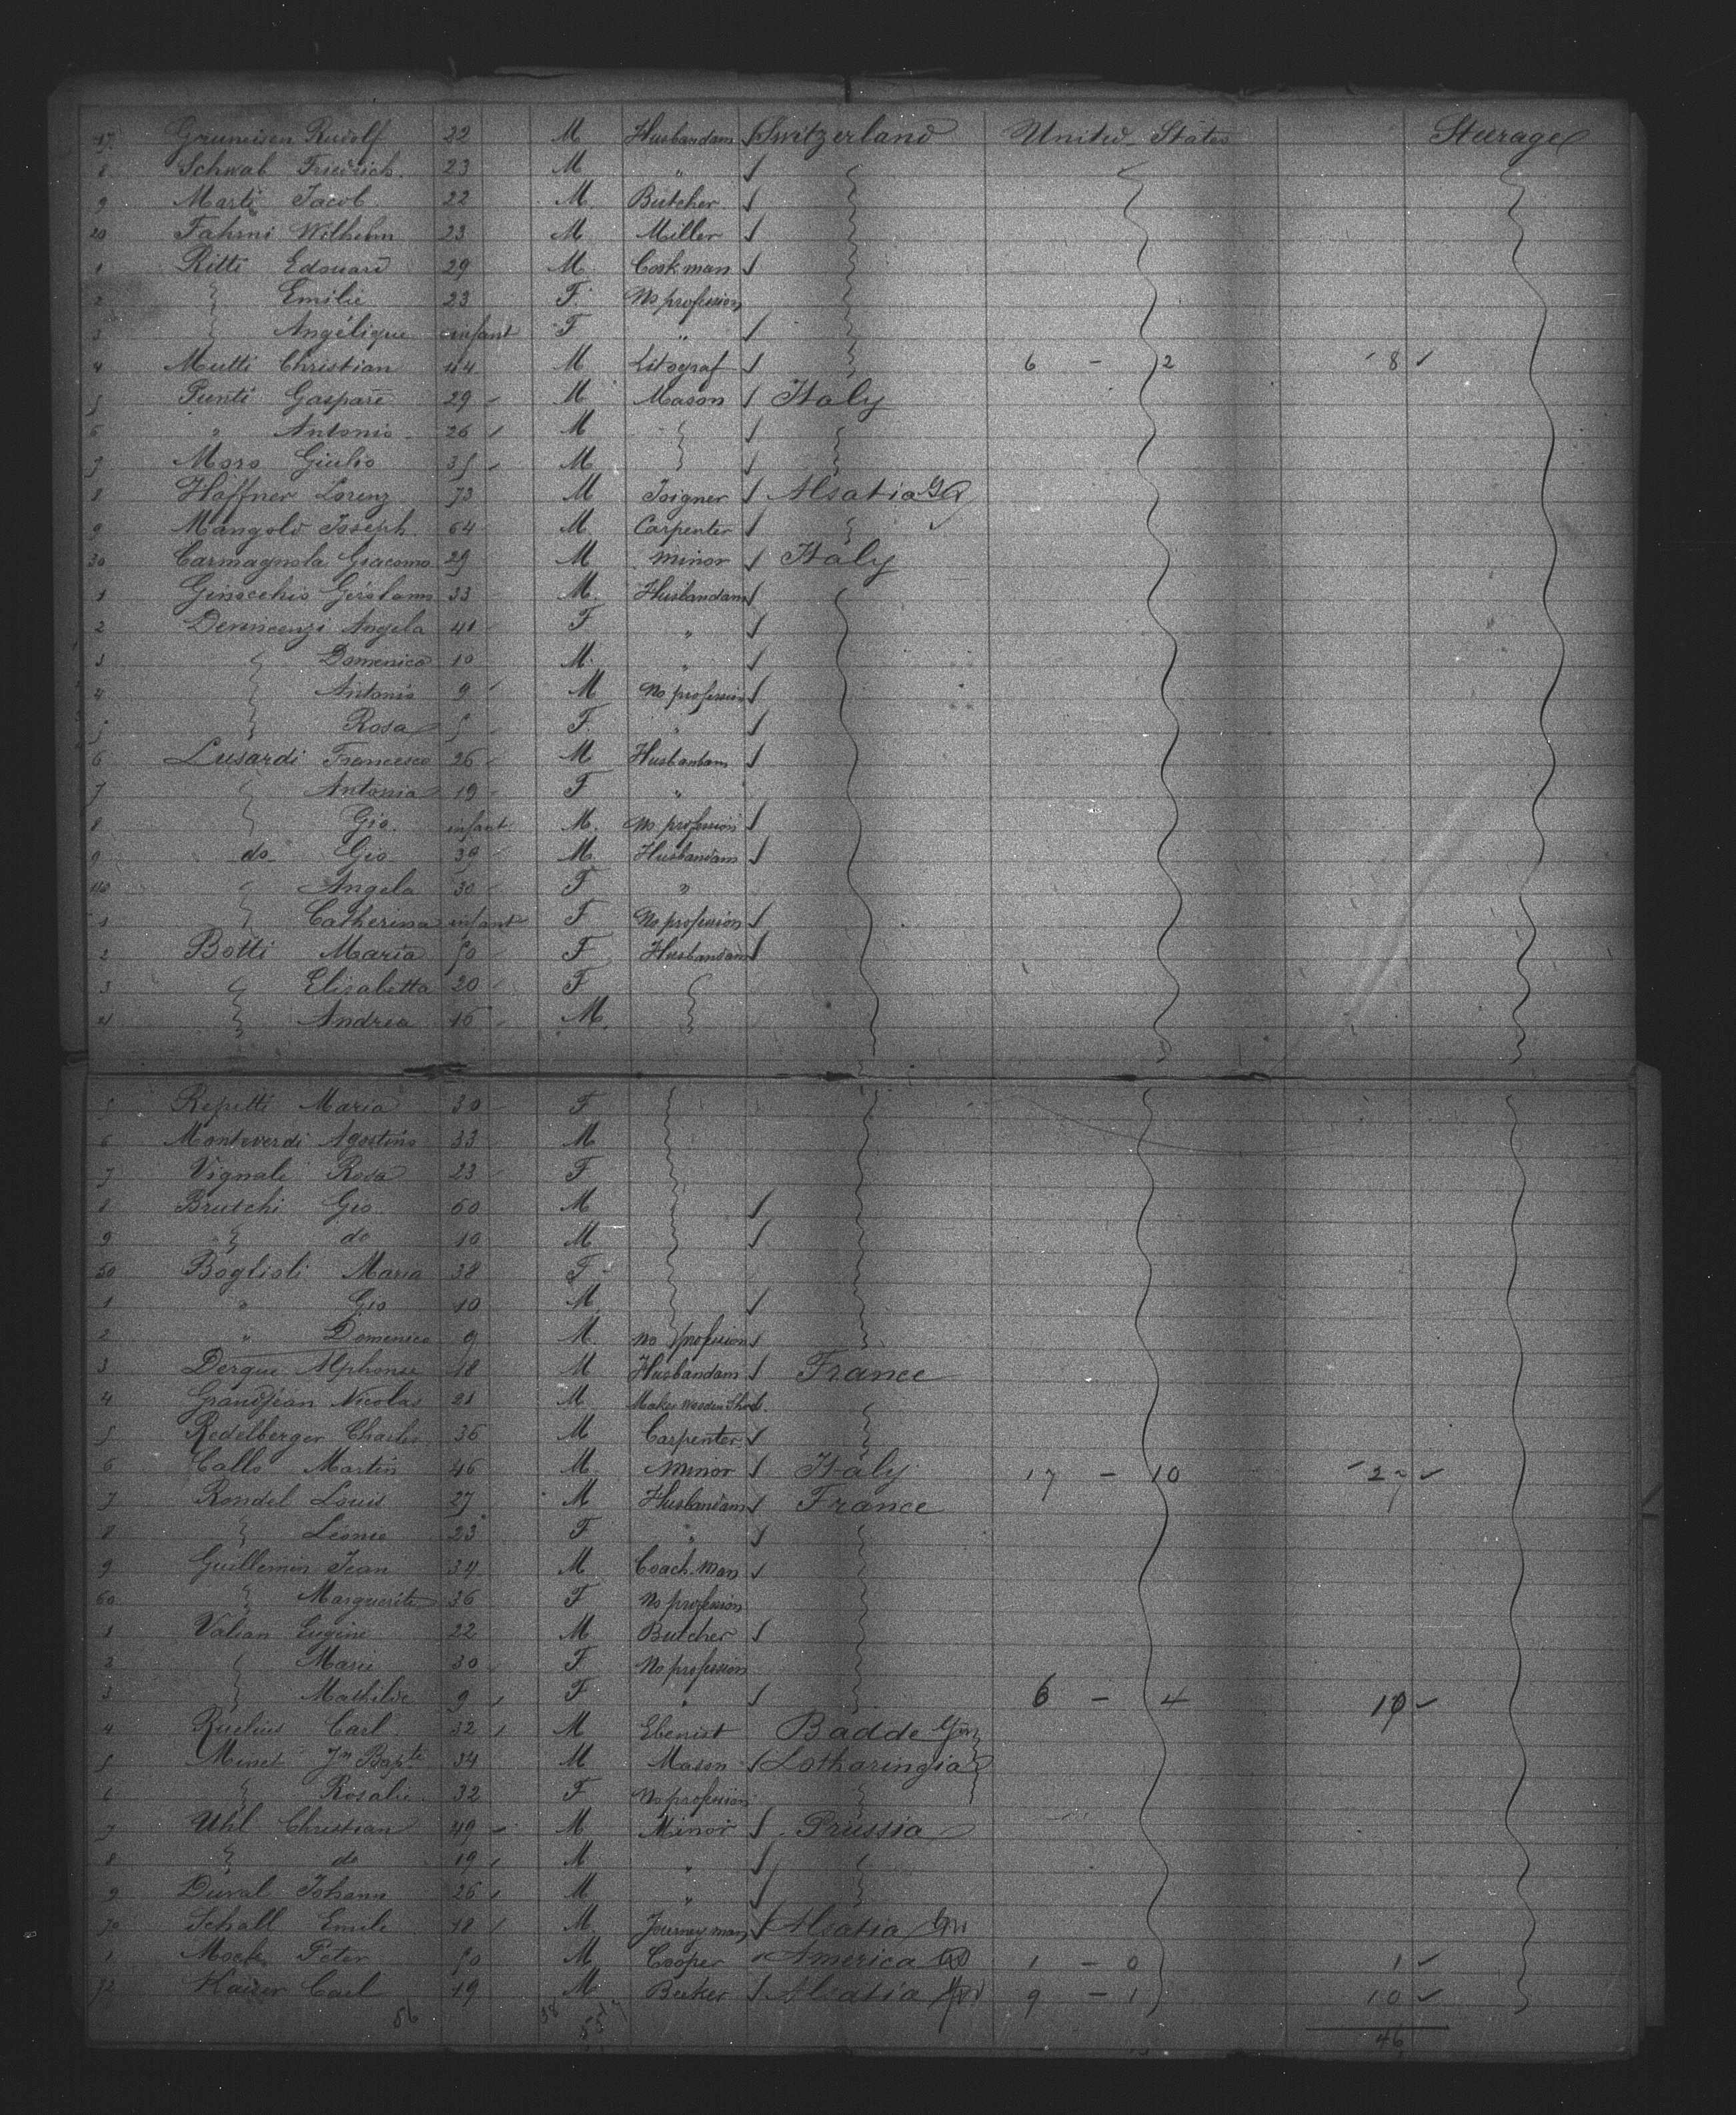 17 Gruneisen Rudolf 22 M Husbandam Switzerland United States Sturage
8 Schwab Friedrich 23 M "
9 Marti Jacob 22 M. Butcher
20 Fahrni Wilhelm 23 M Miller
1 Ritti Edouard 29 M Cookman
2 Emilie 23 F. No profession
3 Angélique infant F "
4 Mutti Christian 44 M Litograf 6 - 2 8
5 Punti Gaspare 29 M Mason Italy
6 " Antonio 26 M
7 Moro Giulio 35 M
8 Haffner Lorenz 73 M Joigner Alsatia
9 Mangold Joseph 64 M Carpenter
30 Carmagnola Giacomo 29 M minor Italy
1 Ginocchio Girolamo 33 M. Husbandam
2 Devincenzi Angela 41 F "
3 Domenico 10 M. "
4 Antonio 9 M No profession
5 Rosa 5 F. "
6 Lusardi Francesco 26 M Husbandam
7 Antonia 19 F "
8 Gio infant M. No profession
9 do Gio 39 M. Husbandam
40 Angela 30 F "
1 Catherina infant F No profession
2 Botti Maria 50 F Husbandam
3 Elisabetta 20 F
4 Andrea 16 M.
5 Repetti Maria 30 F
6 Monteverdi Agostino 33 M
7 Vignali Rosa 23 F
8 Bruschi Gio 60 M
9 do 10 M
50 Boglioli Maria 38 F
1 " Gio 10 M
2 " Domenico 9 M. no profession
3 Dergue Alphonse 18 M Husbandam France
4 Grandjean Nicolas 21 M. Maker wooden Shoes.
5 Redelberger Charles 36 M Carpenter
6 Callo Martin 46 M. Minor Italy 17 - 10 27
7 Rondel Louis 27 M Husbandam France
8 Leonie 23 F "
9 Guillemin Jean 34 M Coach-man
60 Marguerite 36 F No profession
1 Valian Eugine 22 M Butcher
2 Marie 30 F No profession
3 Mathilde 9 F " 6 - 4 10
4 Ruelius Carl 32 M Ebenist Badde
5 Minet Jn Bapte 34 M Mason Lotharingia
6 Rosalie 32 F No profession
7 Uhl Christian 49 M Minor Prussia
8 do 19 M "
9 Duval Johann 26 M "
70 Schall Emile 18 M Journeyman Alsatia
1 Mock Peter 50 M Cooper America 1 - 0 1
72 Kaiser Carl 19 M Beker Alsatia 9 - 1 10
46